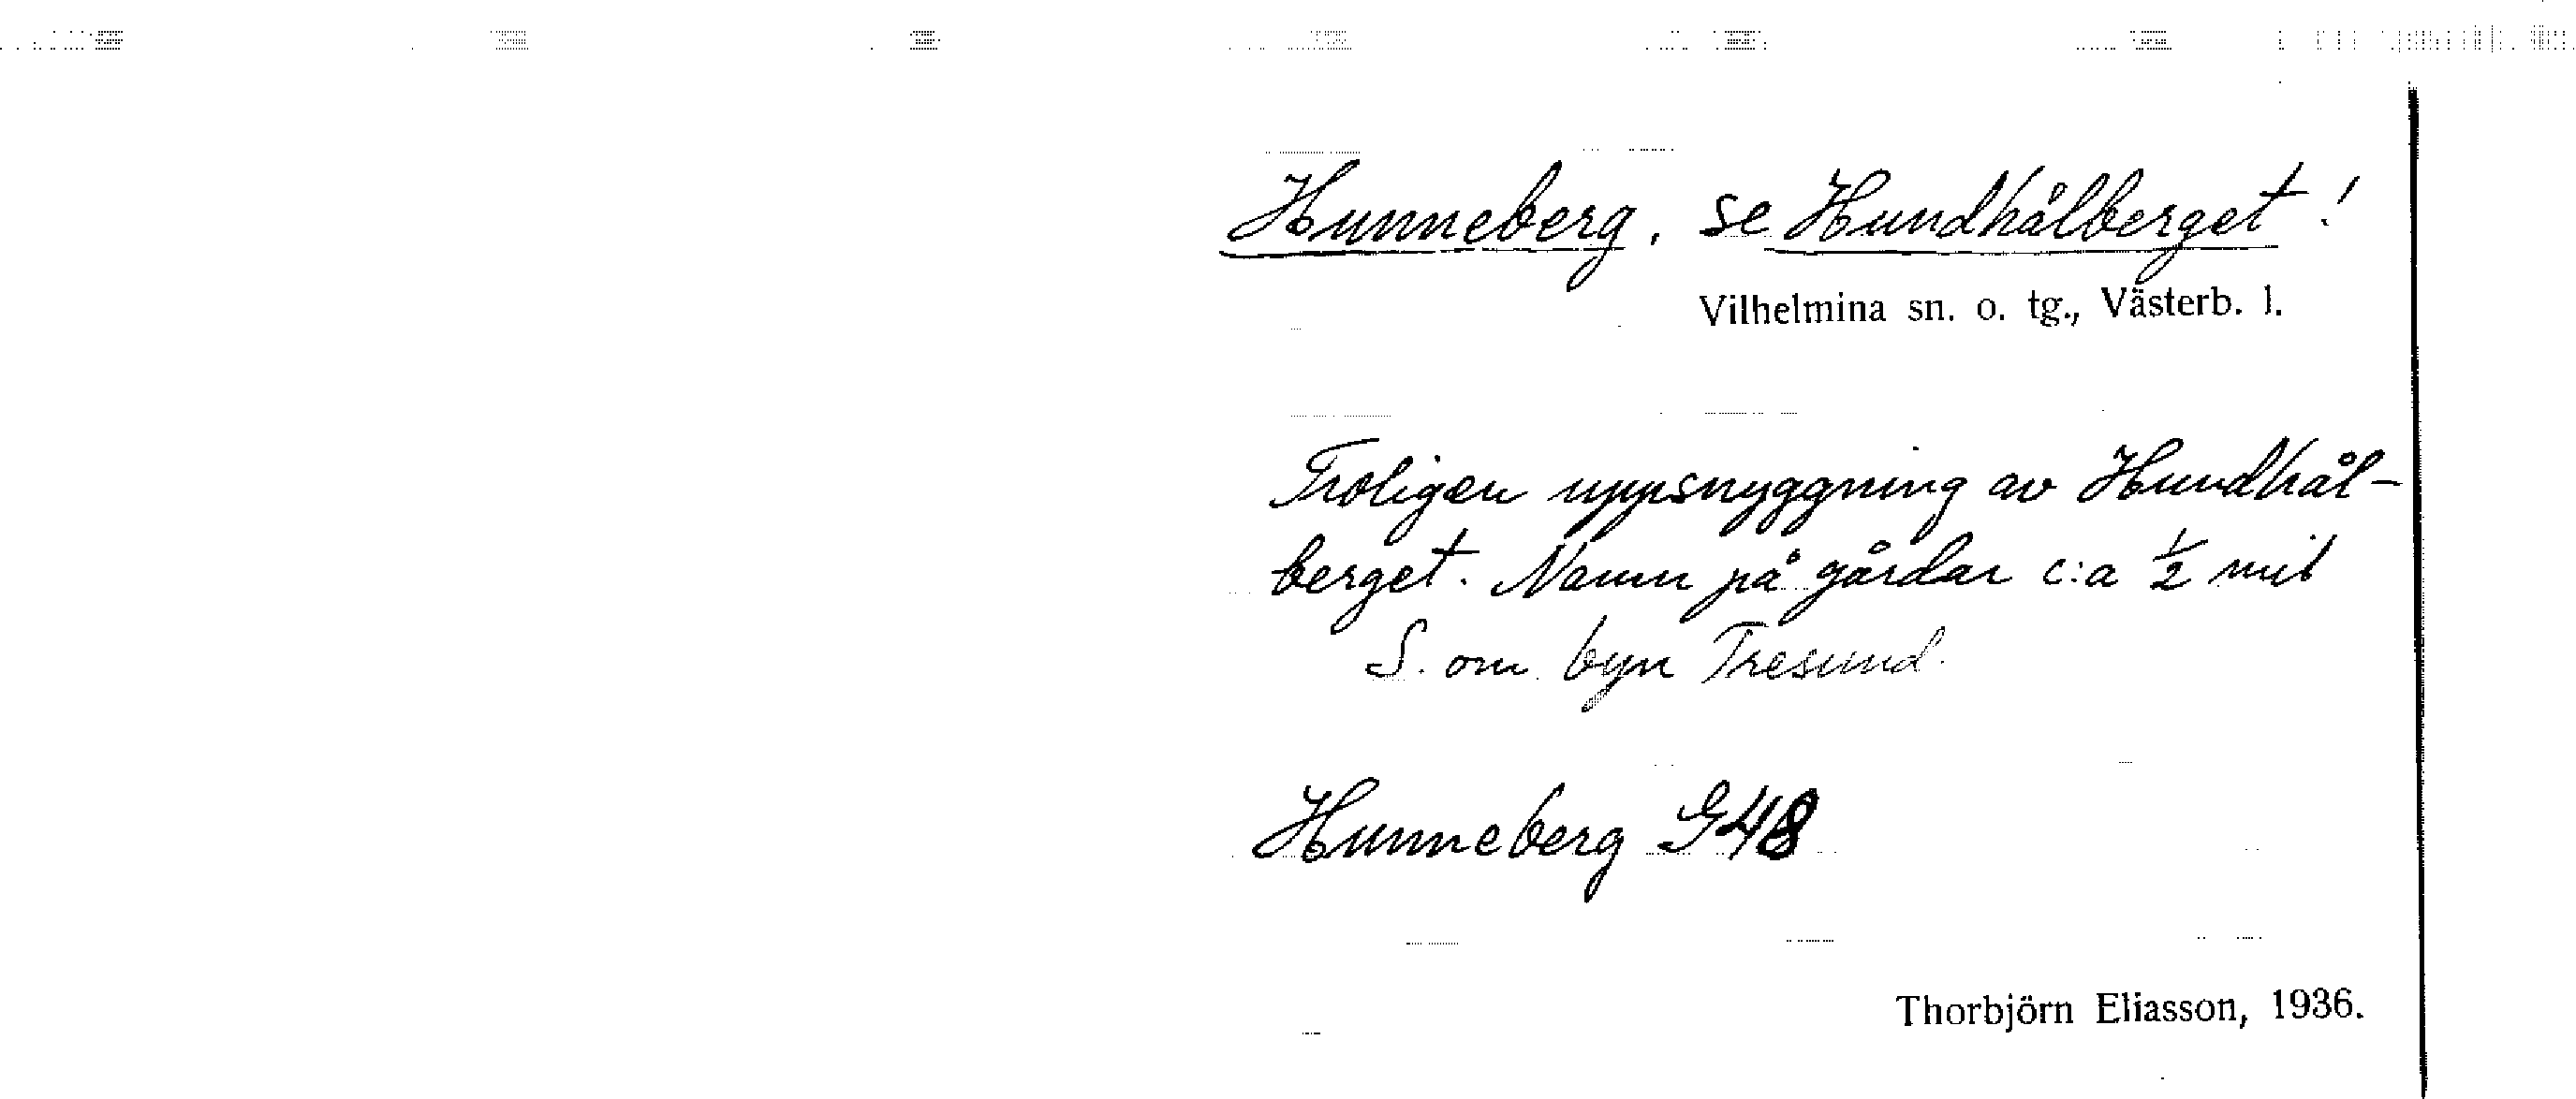 Hunneberg, se Hundhålberget!
Vilhelmina sn. o. tg., Västerb. l.
Troligen uppsnyggning av Hundhål-
berget. Namn på gårdar c:a ½ mil
S. om byn Tresund.
Hunneberg G48
Thorbjörn Eliasson, 1936.